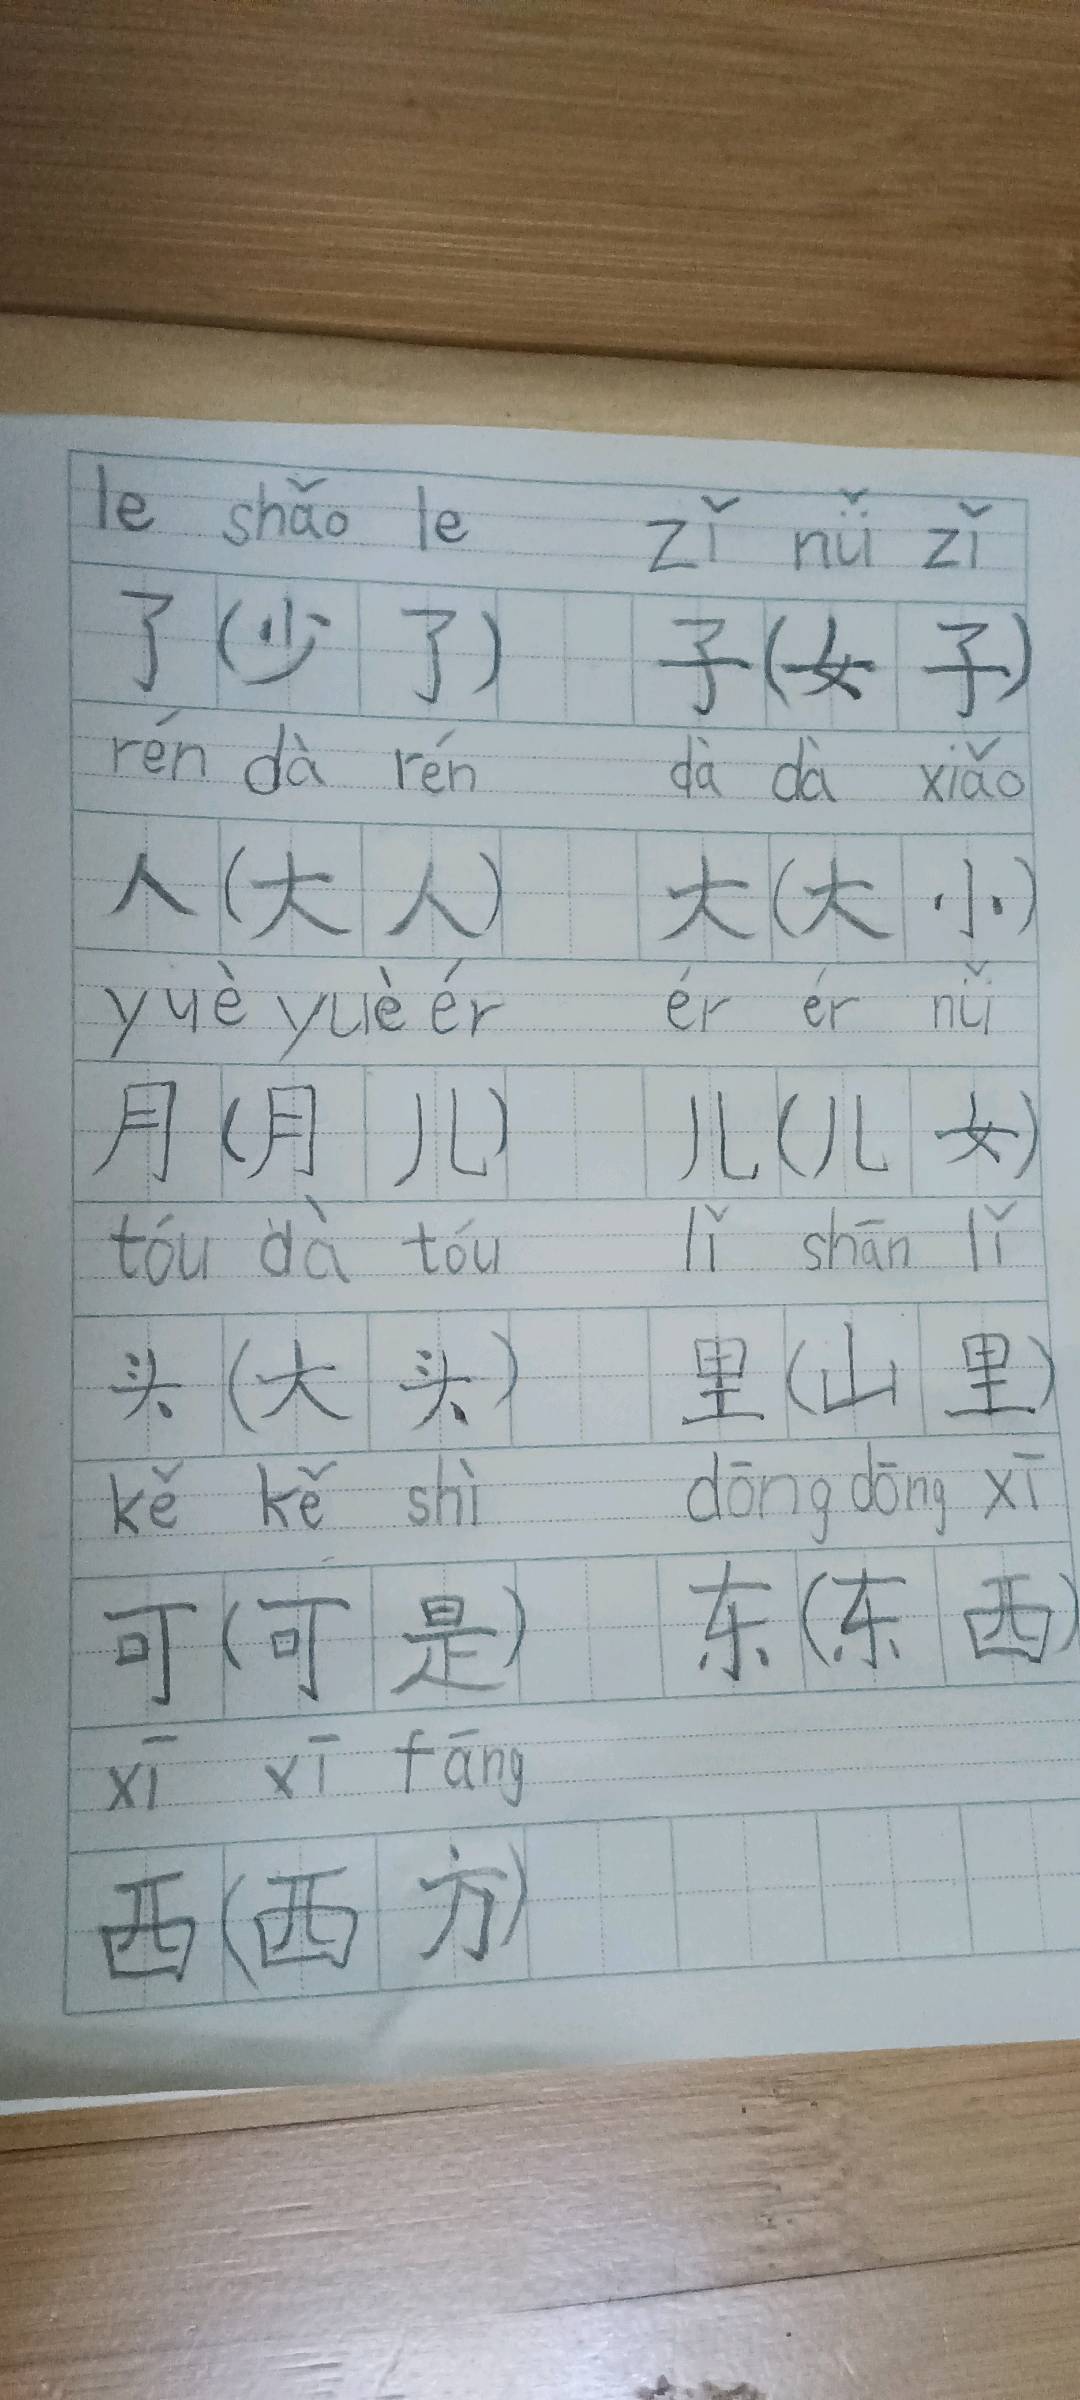 le shǎo le zǐ nǚ zǐ
了(少了) 子(女子)
rén dà rén dà dà xiǎo
人(大人) 大(大小)
yuè yuè ér ér ér nǚ
月(月儿) 儿(儿女)
tóu dà tóu lǐ shān lǐ
头(大头) 里(山里)
kě kě shì dōng dōng xī
可(可是) 东(东西)
xī xī fāng
西(西方)